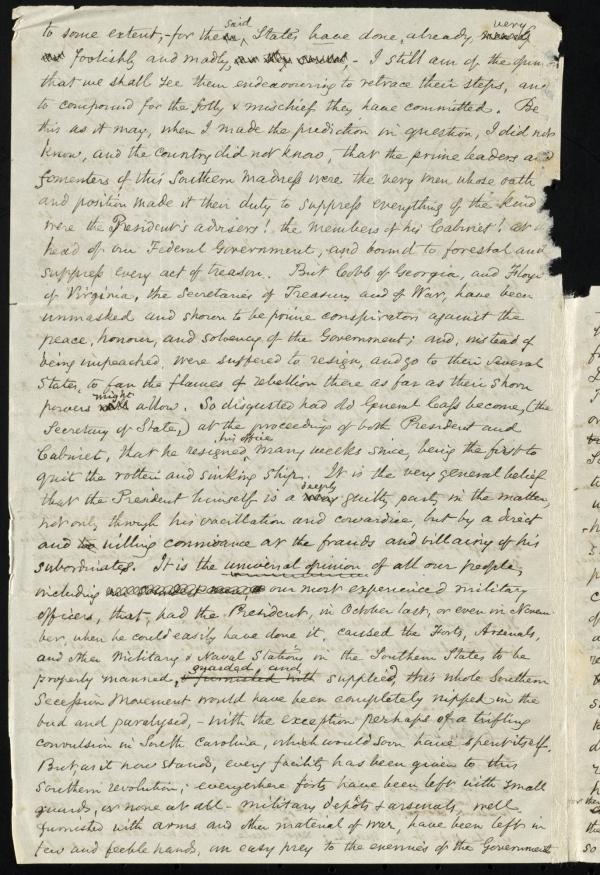 to some extent, - for the said States have done, already, very
foolishly and madly, - I still am of the opinion
that we shall see them endeavouring to retrace their steps, and
to compound for the folly & mischief they have committed. Be
this as it may, when I made the prediction in question, I did not
know, and the country did not know, that the prime leaders and
fomenters of this Southern Madness were the very men whose oath
and position made it their duty to suppress everything of the kind
were the President's advisers! the members of his Cabinet! at
head of our Federal Government, and bound to forestal and
suppress every act of treason. But Cobb of Georgia, and Floyd
of Virginia, the Secretaries of Treasury and of War, have been
unmasked and shown to be prime conspirators against the
peace, honour, and solvency of the Government; and, instead of
being impeached, were suffered to resign, and go to their several
States, to fan the flames of rebellion there as far as their shorn
powers might allow. So disgusted had old General Cass become, (the
Secretary of State,) at the proceedings of both President and
Cabinet, that he resigned his office many weeks since, being the first to
quit the rotten and sinking ship. It is the very general belief
that the President himself is a deeply guilty party in the matter,
not only through his vacillation and cowardice, but by a direct
and willing connivance at the frauds and villainy of his
subordinates. It is the universal opinion of all our people,
including our most experienced military
officers, that, had the President, in October last, or even in Novem
ber, when he could easily have done it, caused the Forts, Arsenals,
and other Military & Naval Stations in the Southern States to be
properly manned, guarded, and supplied, this whole Southern
Secession Movement would have been completely nipped in the
bud and paralysed, - with the exception perhaps of a trifling
convulsion in South Carolina, which would soon have spent itself.
But as it now stands, every facility has been given to this
Southern revolution; everywhere forts have been left with small
guards, or none at all - military depots & arsenals, well
furnished with arms and other material of war, have been left in
few and feeble hands, an easy prey to the enemies of the Government